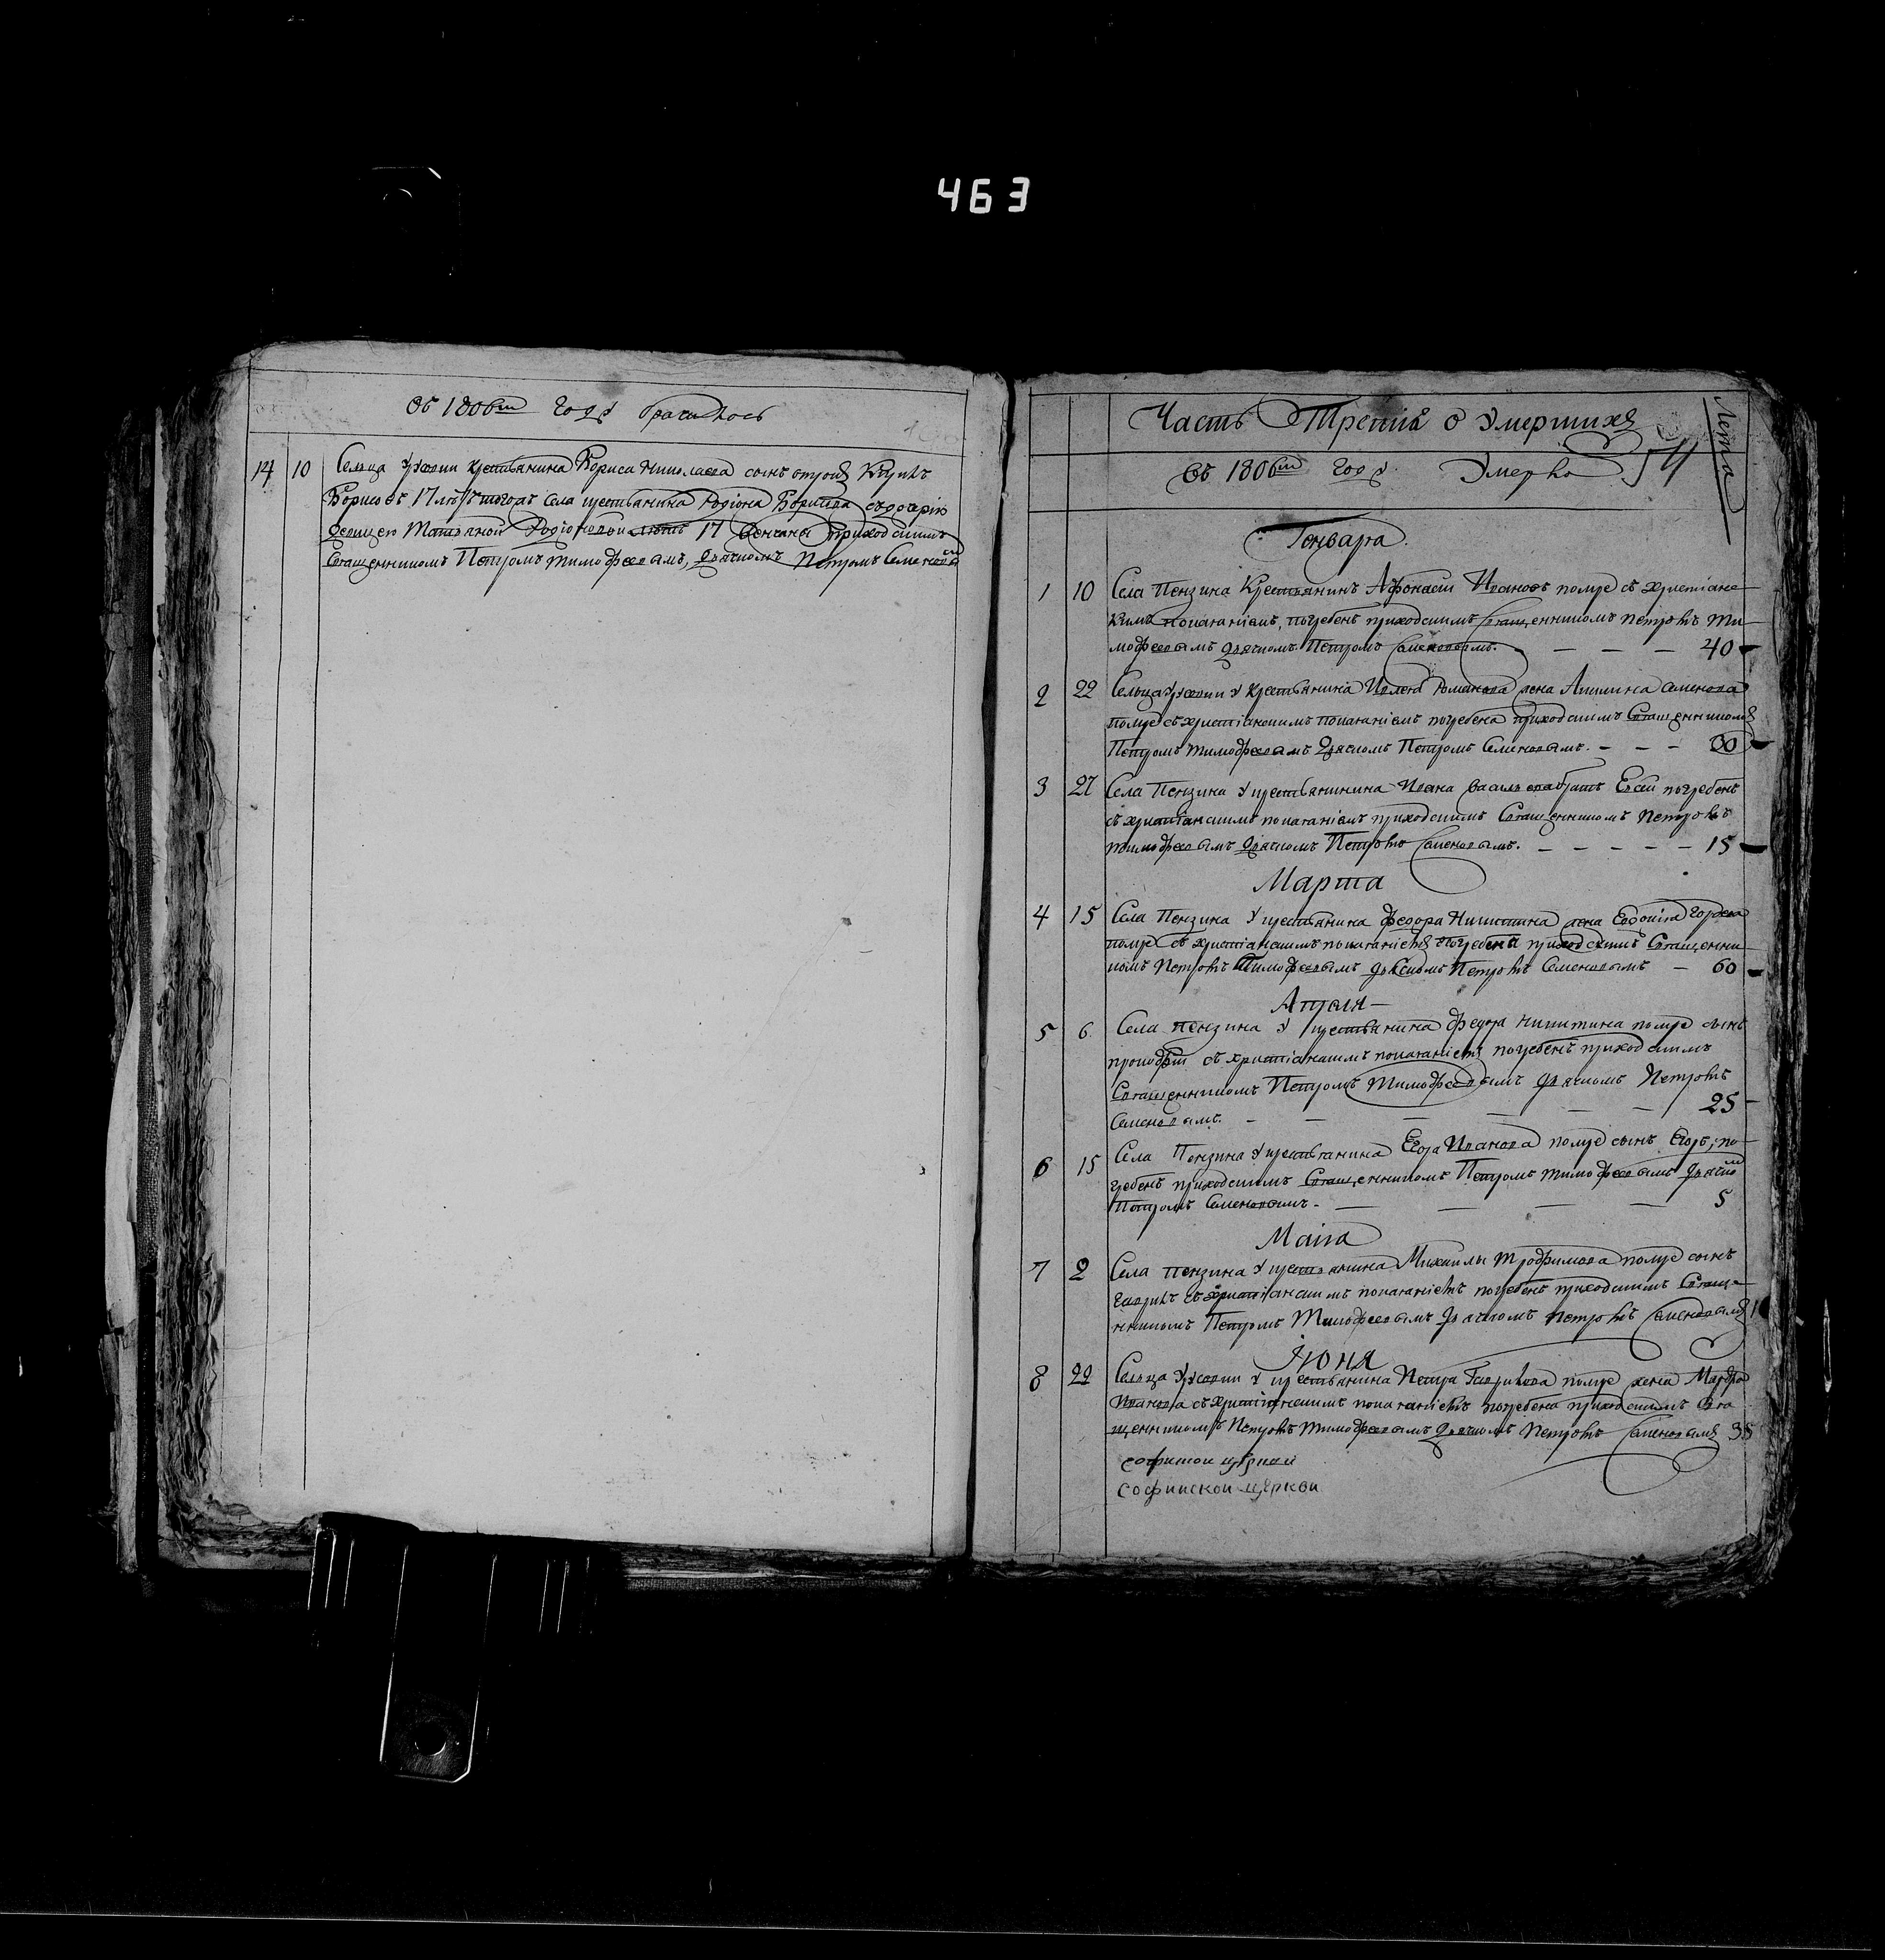 463
Въ 1806м году брачилось
14 10 Сельца крестьянина Бориса Николаева сынъ отрокъ
Борисовъ 17 лѣтъ тогожъ села крестьянина Родіона Борисова съ дочерію
девицею Татьяной Родіоновой лѣтъ 17 венчаны приходскимъ
Священникомъ Петромъ Тимофеевымъ, дьячкомъ Петромъ Семеновым
Часть Третія о Умершихъ
Лета
Въ 1806м году Умерло 54
Генваря
1 10 Села Пензина Крестьянинъ Афонасеи Ивановъ померъ съ христіанс
кимъ покаяніемъ, погребенъ приходскимъ Священникомъ Петромъ Ти
мофеевымъ дьячкомъ Петромъ Семеновымъ. — — — — 40
2 22 Сельца у крестьянина Романова жена Акилина Семенова
померъ съ христіанскимъ покаяніемъ погребена приходскимъ Священникомъ
Петромъ Тимофеевымъ дьячкомъ Петромъ Семеновымъ. — — — 30
3 27 Села Пензина у крестьянинина Ивана Васильева братъ Евсеи погребенъ
съ христіанскимъ покаяніемъ приходскимъ Священникомъ Петромъ
Тимофеевымъ дьячкомъ Петромъ Семеновымъ. — — — — — 15
Марта
4 15 Села Пензина у крестьянина Федора Никитина жена Евдокиіа Гордеева
померъ съ христіанскимъ покаяніемъ погребена приходскимъ Священни
комъ Петромъ Тимофеевымъ дьячкомъ Петромъ Семеновымъ — 60
Апреля
5 6 Села Пензина у крестьянина Федора Никитина померъ сынъ
Прокофеи съ христіанскимъ покаяніемъ погребенъ приходскимъ
Священникомъ Петромъ Тимофеевымъ дьячкомъ Петромъ
Семеновымъ. — — — — — 25
6 15 Села Пензина у крестьянина Егора Иванова померъ сынъ Егоръ, по
гребенъ приходскимъ Священникомъ Петромъ Тимофеевымъ дьячком
Петромъ Семеновымъ. — — — — 5
Маиа
7 2 Села Пензина у крестьянина Михаилы Трофимова померъ сынъ
Гаврилъ съ христіанскимъ покаяніемъ погребенъ приходскимъ Свяще
нникомъ Петромъ Тимофеевымъ дьячкомъ Петромъ Семеновымъ 1
Июня
8 22 Сельца у крестьянина Петра Гаврилова померъ жена Марфа
Иванова съ христіанскимъ покаяніемъ погребена приходскимъ Свя
щенникомъ Петромъ Тимофеевымъ дьячкомъ Петромъ Семеновымъ 35
Софискои церкви
Софииской церкви